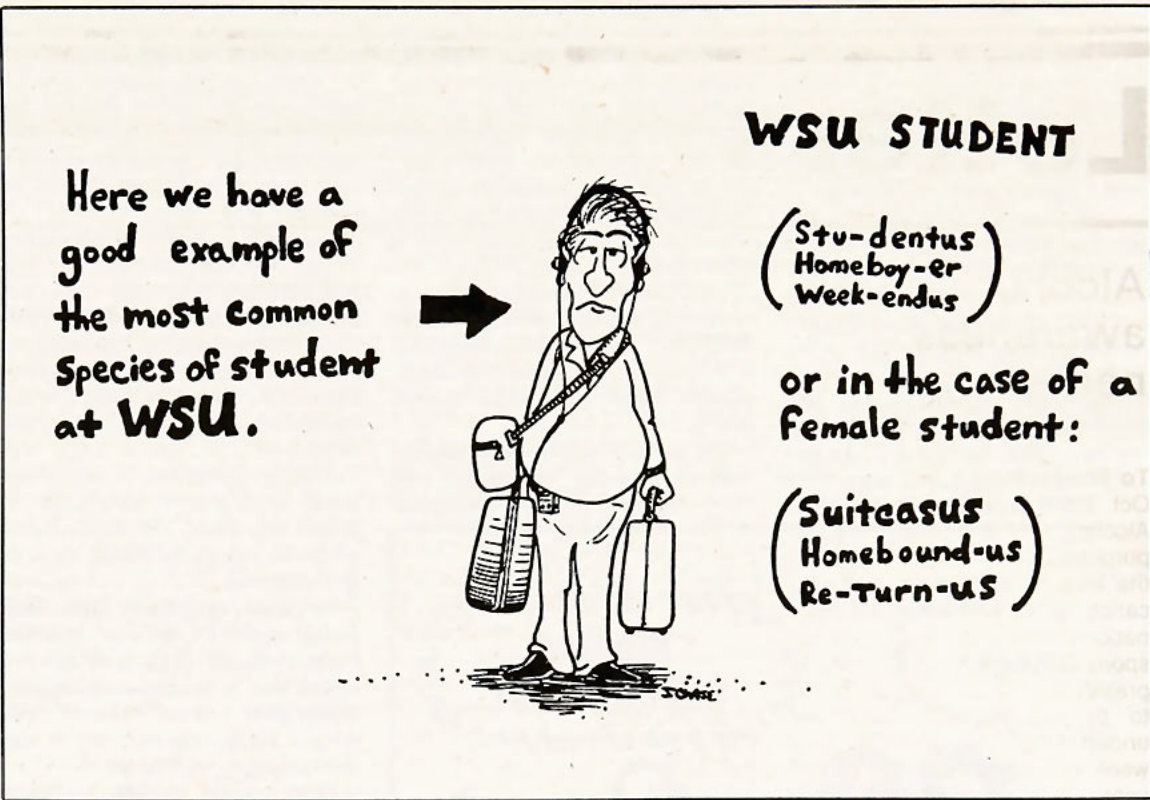 Here we have a
good example of
the most common
Species of student
at WSU.
WSU STUDENT
(Stu-dentus
Homeboy-er
Week-endus)
or in the case of a
female student:
(Suitcasus
Homebound-us
Re-Turn-us)